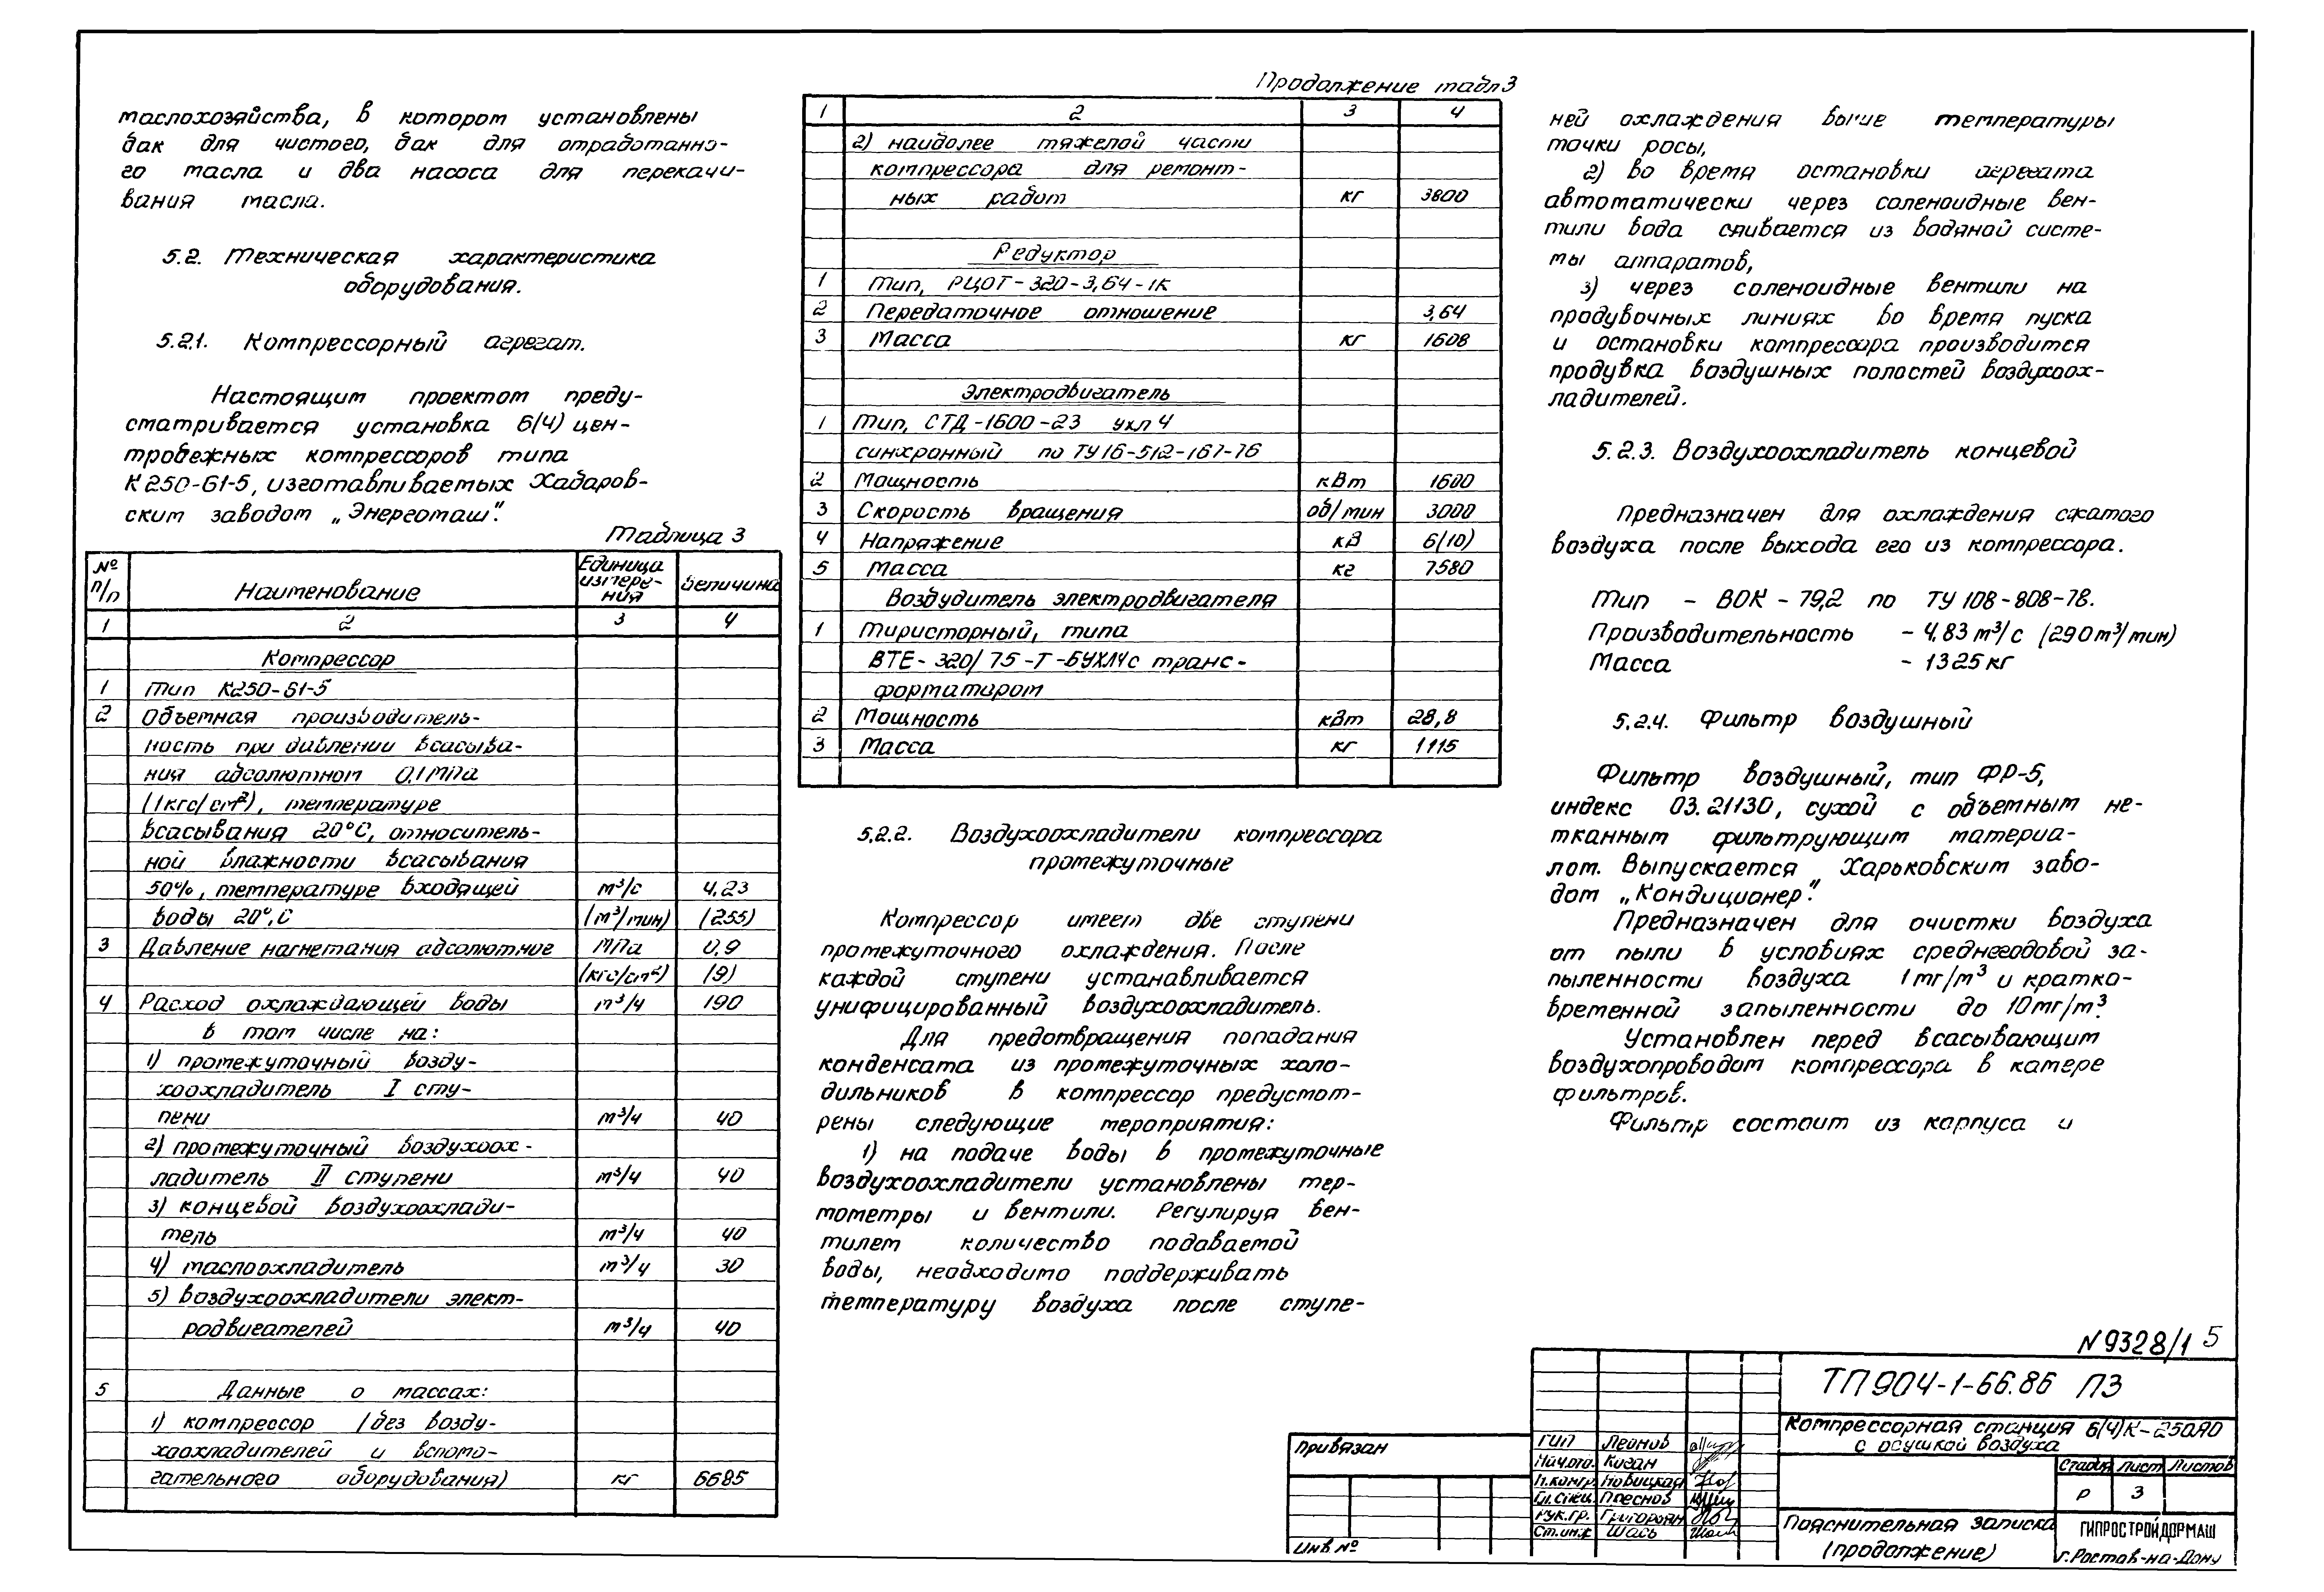 маслохозяйства, в котором установлены
бак для чистого, бак для отработанно-
го масла и два насоса для перекачи-
вания масла.
5.2. Техническая характеристика
оборудования.
5.2.1. Компрессорный агрегат.
Настоящим проектом преду-
сматривается установка 6(4) цен-
тробежных компрессоров типа
К250-61-5, изготавливаемых Хабаров-
ским заводом „Энергомаш".
Таблица 3
№ п/п Наименование Единица измере-ния Величина
1 2 3 4
Компрессор
1 Тип К250-61-5
2 Объемная производитель-
ность при давлении всасыва-
ния абсолютном 0,1 МПа
(1кгс/см²), температуре
всасывания 20°С, относитель-
ной влажности всасывания
50%, температуре входящей м³/с 4,23
воды 20°,С (м³/мин) (255)
3 Давление нагнетания абсолютное МПа 0,9
(кгс/см²) (9)
4 Расход охлаждающей воды м³/ч 190
в том числе на:
1) промежуточный возду-
хоохладитель I сту-
пени м³/ч 40
2) промежуточный воздухоох-
ладитель II ступени м³/ч 40
3) концевой воздухоохлади-
тель м³/ч 40
4) маслоохладитель м³/ч 30
5) воздухоохладители элект-
родвигателей м³/ч 40
5 Данные о массах:
1) компрессор (без возду-
хоохладителей и вспомо-
гательного оборудования) кг 6685
Продолжение табл 3
1 2 3 4
2) наиболее тяжелой части
компрессора для ремонт-
ных работ кг 3800
Редуктор
1 Тип, РЦОТ-320-3,64-1К
2 Передаточное отношение 3,64
3 Масса кг 1608
Электродвигатель
1 Тип, СТД-1600-23 ухл 4
синхронный по ТУ16-512-167-76
2 Мощность кВт 1600
3 Скорость вращения об/мин 3000
4 Напряжение кВ 6(10)
5 Масса кг 7580
Возбудитель электродвигателя
1 Тиристорный, типа
ВТЕ-320/75-Т-БУХЛ4с транс-
форматором
2 Мощность кВт 28,8
3 Масса кг 1115
5.2.2. Воздухоохладители компрессора
промежуточные
Компрессор имеет две ступени
промежуточного охлаждения. После
каждой ступени устанавливается
унифицированный воздухоохладитель.
Для предотвращения попадания
конденсата из промежуточных холо-
дильников в компрессор предусмот-
рены следующие мероприятия:
1) на подаче воды в промежуточные
воздухоохладители установлены тер-
мометры и вентили. Регулируя вен-
тилем количество подаваемой
воды, необходимо поддерживать
температуру воздуха после ступе-
ней охлаждения выше температуры
точки росы,
2) во время остановки агрегата
автоматически через соленоидные вен-
тили вода сливается из водяной систе-
мы аппаратов,
3) через соленоидные вентили на
продувочных линиях во время пуска
и остановки компрессора производится
продувка воздушных полостей воздухоох-
ладителей.
5.2.3. Воздухоохладитель концевой
Предназначен для охлаждения сжатого
воздуха после выхода его из компрессора.
Тип - ВОК-79,2 по ТУ 108-808-78.
Производительность - 4,83 м³/с (290м³/мин)
Масса - 1325кг
5.2.4. Фильтр воздушный
Фильтр воздушный, тип ФР-5,
индекс 03.21130, сухой с объемным не-
тканным фильтрующим материа-
лом. Выпускается Харьковским заво-
дом „Кондиционер".
Предназначен для очистки воздуха
от пыли в условиях среднегодовой за-
пыленности воздуха 1мг/м³ и кратко-
временной запыленности до 10мг/м³.
Установлен перед всасывающим
воздухопроводом компрессора в камере
фильтров.
Фильтр состоит из корпуса и
N 9328/1 5
ТП 904-1-66.86 ПЗ
Компрессорная станция 6(4)К-250АО
с осушкой воздуха
Стадия Лист Листов
Р 3
Пояснительная записка
(продолжение)
ГИПРОСТРОЙДОРМАШ
г.Ростов-на-Дону
Привязан
Инв №
ГИП Леонов
Нач.отд. Коган
Н.контр. Новицкая
Гл.спец. Плеснов
Рук.гр. Григорьян
Ст.инж Шась